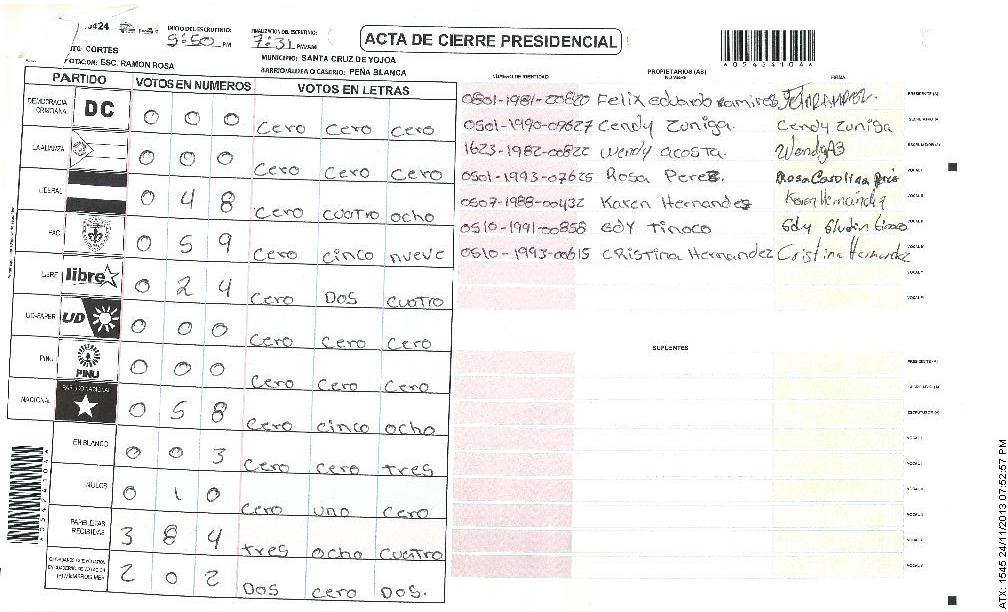 0424
INICIO DEL ESCRUTINIO: 5:50 PM
FINALIZACION DEL ESCRUTINIO: 7:31 PM/AM
ACTA DE CIERRE PRESIDENCIAL
CORTES
MUNICIPIO: SANTA CRUZ DE YOJOA
VOTACION: ESC. RAMON ROSA
BARRIO/ALDEA O CASERIO: PEÑA BLANCA
PARTIDO VOTOS EN NUMEROS VOTOS EN LETRAS
DEMOCRACIA CRISTIANA DC 0 0 0 Cero Cero Cero
LA ALIANZA 0 0 0 Cero Cero Cero
LIBERAL 0 4 8 Cero cuatro ocho
PAC 0 5 9 Cero cinco nueve
LIBRE libre 0 2 4 Cero DOS cuatro
UD-FAPER UD 0 0 0 Cero Cero Cero
PINU PINU 0 0 0 Cero Cero Cero
NACIONAL PARTIDO NACIONAL 0 5 8 Cero cinco ocho
EN BLANCO 0 0 3 Cero cero tres
NULOS 0 1 0 Cero uno cero
PAPELETAS RECIBIDAS 3 8 4 tres ocho cuatro
2 0 2 DOS cero DOS.
NUMERO DE IDENTIDAD PROPIETARIOS (AS) NOMBRE FIRMA
0501-1981-00820 Felix eduardo ramires PRESIDENTE (A)
0501-1990-09627 Cendy Zuniga. Cendy Zuniga SECRETARIO (A)
1623-1982-00822 Wendy acosta. ESCRUTADOR (A)
0501-1993-07625 Rosa Perez. Rosa Carolina VOCAL I
0507-1988-00432 Karen Hernandez Karen Hernández VOCAL II
0510-1991-00858 Edy Tinoco VOCAL III
0510-1993-00615 Cristina Hernandez Cristina Hernandez VOCAL IV
VOCAL V
VOCAL VI
SUPLENTES
PRESIDENTE (A)
SECRETARIO (A)
ESCRUTADOR (A)
VOCAL I
ATX: 1545 24/11/2013 07:52:57 PM